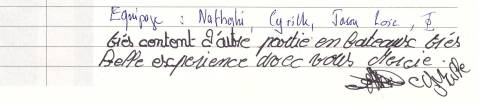 Equipage : Nathoghi, Cyrille, Jason Loic,
très content d'autre partie en bateaux très
belle esperience avec vous merci.
cyrille